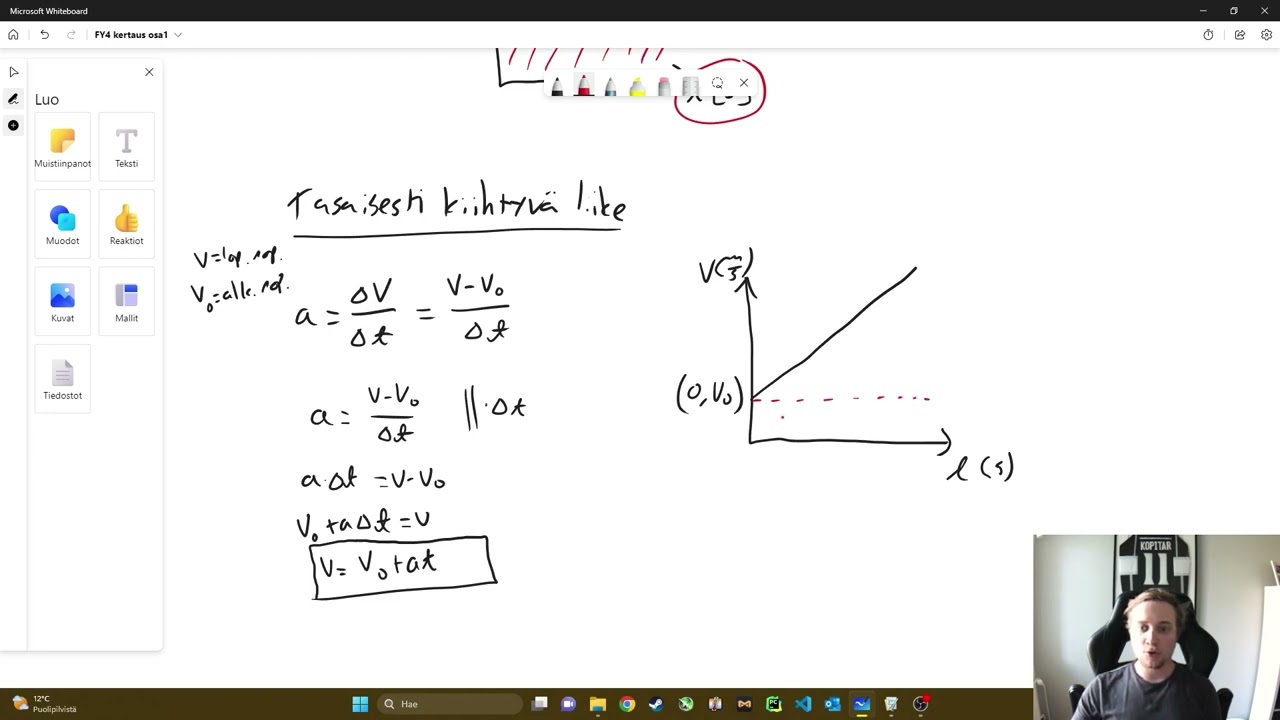 Microsoft Whiteboard
FY4 kertaus osa1
Luo
Muistiinpanot
Teksti
Muodot
Reaktiot
Kuvat
Mallit
Tiedostot
Tasaisesti kiihtyvä liike
V=lop. nop.
V₀=alk. nop.
a = ΔV/Δt = V-V₀/Δt
a = V-V₀/Δt ||·Δt
a·Δt = V-V₀
V₀+aΔt=V
V= V₀+at
V(m/s)
(0,V₀)
t (s)
KOPITAR
11
12°C
Puolipilvistä
Hae